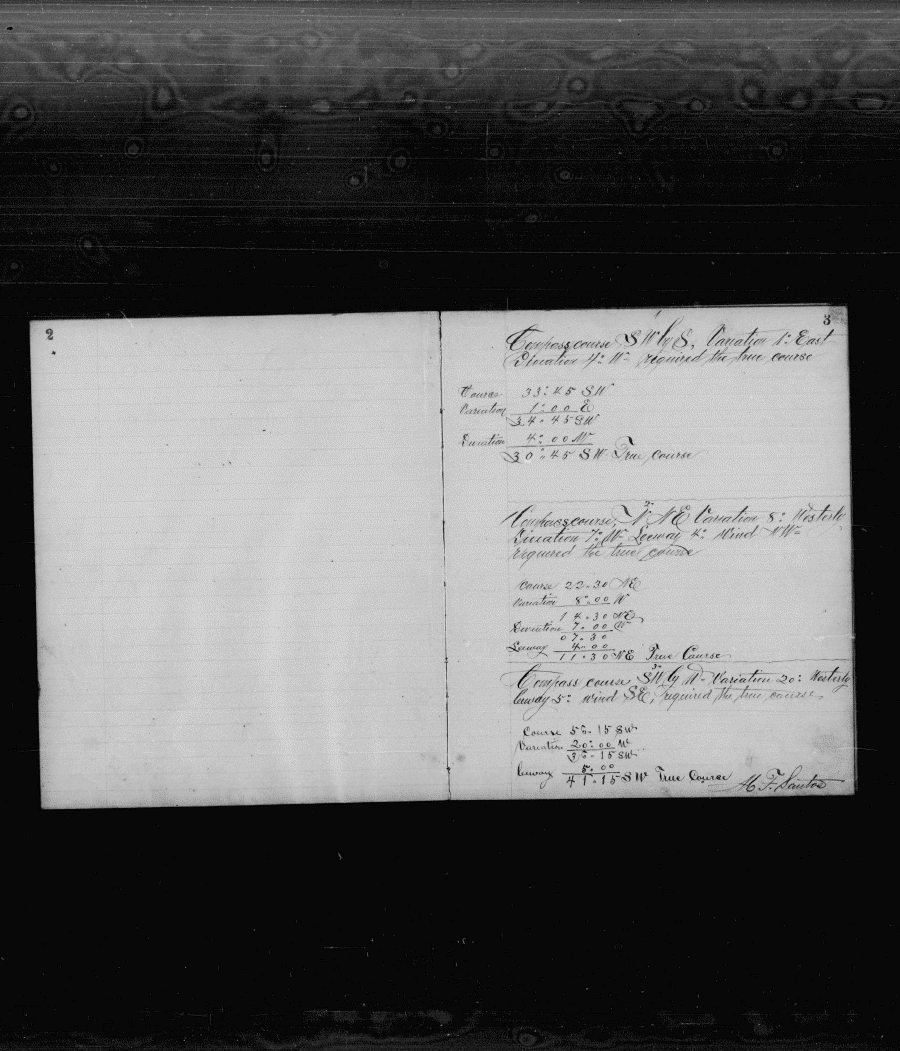 2
3
Compass course SW by S, Variation 1° East
Diviation 4° W required the true course
Course 33° 45 SW
Variation 1° 00 E
34° 45 SW
Diviation 4° 00 W
30° 45 SW True course
2°
Compass course, N NE Variation 8° Westerly
Diviation 7° W Leeway 4° Wind NW
required the true course
Course 22° 30 NE
Variation 8° 00 W
14° 30 NE
Diviation 7° 00 W
07° 30
Leeway 4° 00
11° 30 NE True Course
3°
Compass course SW by W Variation 20° Westerly
leeway 5° wind SE, required the true course
Course 56° 15 SW
Variation 20° 00 W
36° 15 SW
leeway 5° 00
41° 15 SW True Course
M. F. Santos